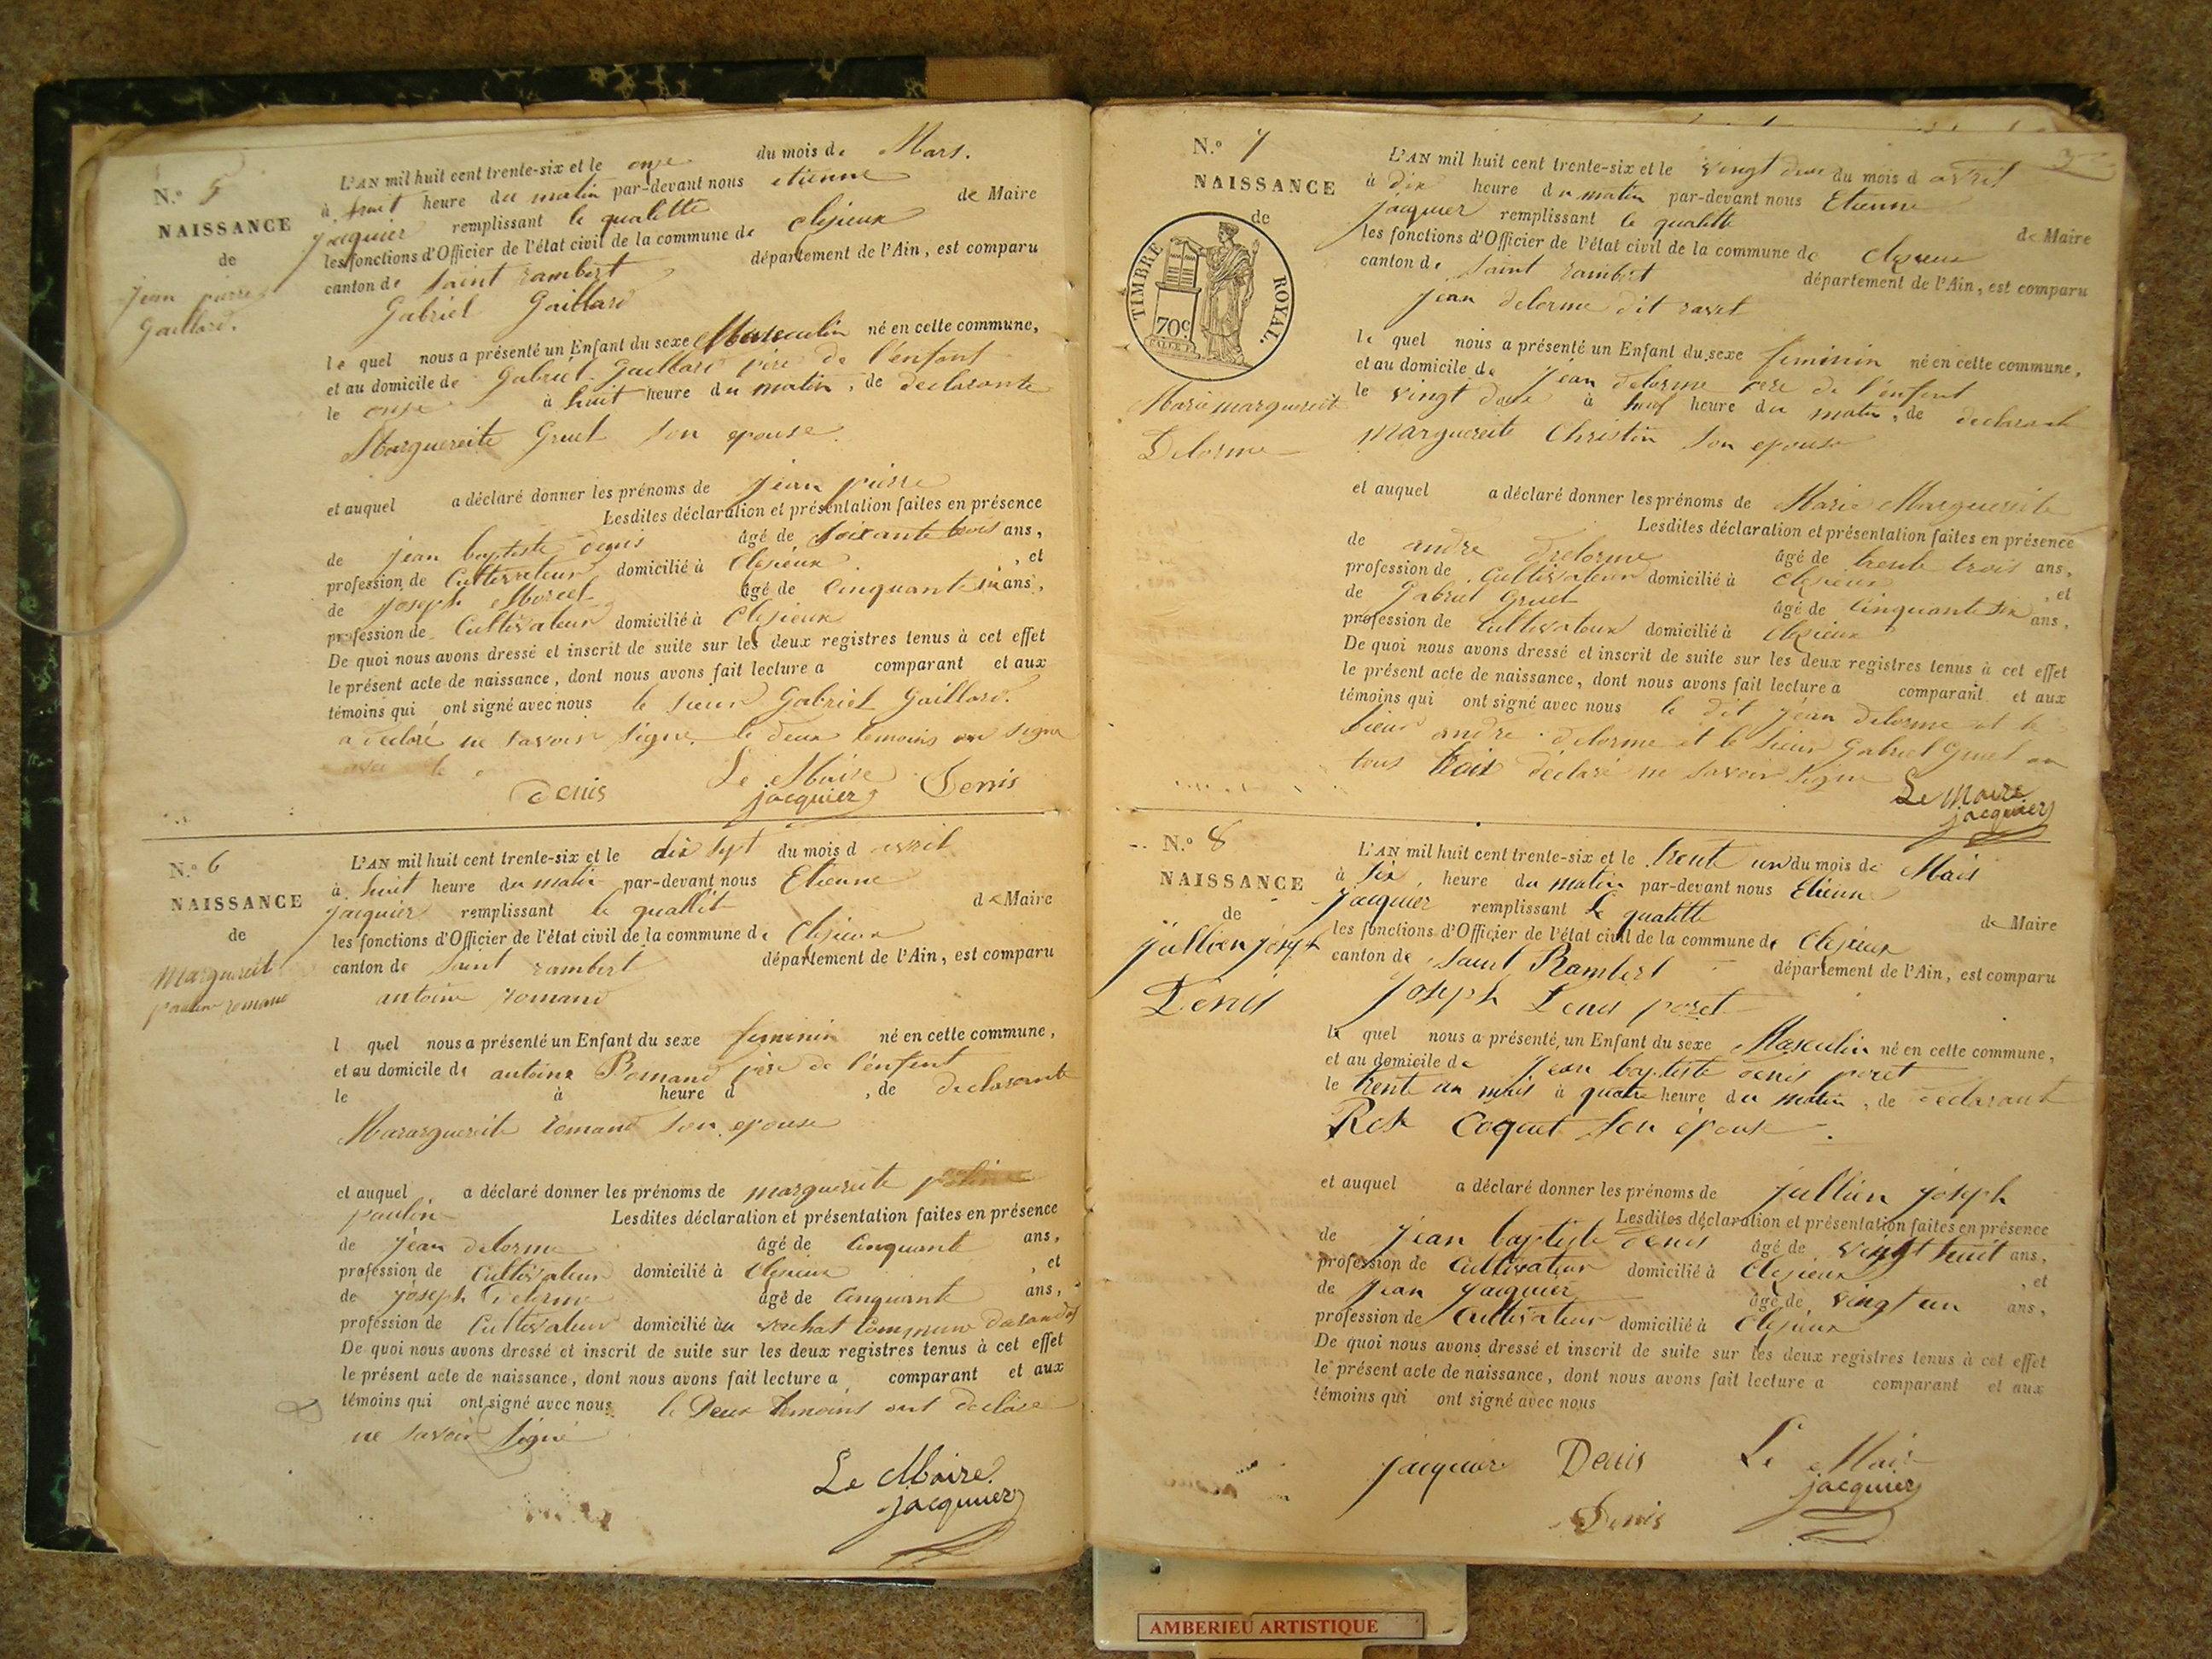 N.º 5
NAISSANCE
de
jean pierre
Gaillard.
L'AN mil huit cent trente-six et le onze du mois de Mars.
à huit heure du matin par-devant nous etienne
jacquier remplissant le qualitté de Maire
les fonctions d'Officier de l'état civil de la commune de Clejieux
canton de Saint rambert département de l'Ain, est comparu
Gabriel Gaillard
le quel nous a présenté un Enfant du sexe Masculin né en cette commune,
et au domicile de Gabriel Gaillard père de l'enfant
le onze à huit heure du matin, de declarante
Marguereite Gruel son epouse.
et auquel a déclaré donner les prénoms de jean pierre
Lesdites déclaration et présentation faites en présence
de jean baptiste denis âgé de soixante trois ans,
profession de Cultivateur domicilié à Clejieux, et
de joseph Morcel âgé de Cinquante six ans,
profession de Cultivateur domicilié à Clejieux
De quoi nous avons dressé et inscrit de suite sur les deux registres tenus à cet effet
le présent acte de naissance, dont nous avons fait lecture a comparant et aux
témoins qui ont signé avec nous le sieur Gabriel Gaillard.
a declaré ne savoir signe. le deux temoins on signe
Denis Le Maire Denis
jacquier
N.º 6
NAISSANCE
de
Marguereite
paulin romand
L'AN mil huit cent trente-six et le dix sept du mois d avril
à huit heure du matin par-devant nous Etienne
jacquier remplissant le quallité de Maire
les fonctions d'Officier de l'état civil de la commune de Clejieux
canton de Saint rambert département de l'Ain, est comparu
antoine romand
l quel nous a présenté un Enfant du sexe feminin né en cette commune,
et au domicile de antoine Romand père de l'enfant
le à heure d , de declarante
Mararguereite romand son epouse
et auquel a déclaré donner les prénoms de marguereite
paulin Lesdites déclaration et présentation faites en présence
de jean delorme âgé de Cinquante ans,
profession de Cultivateur domicilié à Clejieux, et
de joseph Delorme âgé de Cinquante ans,
profession de Cultivateur domicilié à
De quoi nous avons dressé et inscrit de suite sur les deux registres tenus à cet effet
le présent acte de naissance, dont nous avons fait lecture a comparant et aux
témoins qui ont signé avec nous le Deux temoins ont declare
ne savoir signé
Le Maire
jacquier
N.º 7
NAISSANCE
de
TIMBRE ROYAL.
70c
Marie marguereite
Delorme
L'AN mil huit cent trente-six et le vingt deux du mois d avril
à dix heure du matin par-devant nous Etienne
jacquier remplissant le qualitté de Maire
les fonctions d'Officier de l'état civil de la commune de Clejieux
canton de Saint rambert département de l'Ain, est comparu
jean delorme dit ravet
le quel nous a présenté un Enfant du sexe feminin né en cette commune,
et au domicile de jean delorme pere de l'enfent
le vingt deux à heure du matin, de declarant
Marguereite Christin son epouse
et auquel a déclaré donner les prénoms de Marie Marguereite
Lesdites déclaration et présentation faites en présence
de andre delorme âgé de trente trois ans,
profession de Cultivateur domicilié à Clejieux, et
de Gabriel Gruel âgé de Cinquante six ans,
profession de Cultivateur domicilié à Clejieux
De quoi nous avons dressé et inscrit de suite sur les deux registres tenus à cet effet
le présent acte de naissance, dont nous avons fait lecture a comparant et aux
témoins qui ont signé avec nous le dit jean delorme et le
sieur andre delorme et le sieur Gabriel Gruel on
tous trois déclaré ne savoir signe
Le Maire
jacquier
N.º 8
NAISSANCE
de
jullien joseph
Denis
L'AN mil huit cent trente-six et le trente un du mois de Mais
à six heure du matin par-devant nous Etienne
jacquier remplissant le qualitté de Maire
les fonctions d'Officier de l'état civil de la commune de Clejieux
canton de Saint Rambert département de l'Ain, est comparu
joseph Denis poret
le quel nous a présenté un Enfant du sexe Masculin né en cette commune,
et au domicile de jean baptiste denis poret
le trente un mais à quatre heure du matin, de declarant
Rose Coquet son épouse.
et auquel a déclaré donner les prénoms de jullien joseph
Lesdites déclaration et présentation faites en présence
de jean baptiste denis âgé de vingt huit ans,
profession de Cultivateur domicilié à Clejieux, et
de jean jacquier âgé de vingt un ans,
profession de Cultivateur domicilié à Clejieux
De quoi nous avons dressé et inscrit de suite sur les deux registres tenus à cet effet
le présent acte de naissance, dont nous avons fait lecture a comparant et aux
témoins qui ont signé avec nous
jacquier Denis Le Maire
jacquier
Denis
AMBERIEU ARTISTIQUE